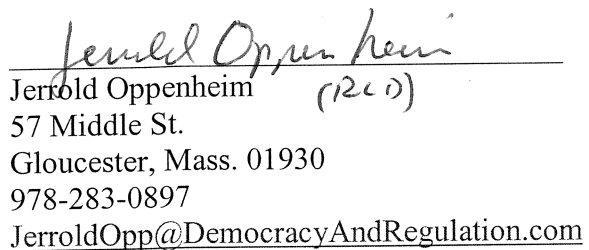 Jerrold Oppenheim
Jerrold Oppenheim (RCD)
57 Middle St.
Gloucester, Mass. 01930
978-283-0897
JerroldOpp@DemocracyAndRegulation.com